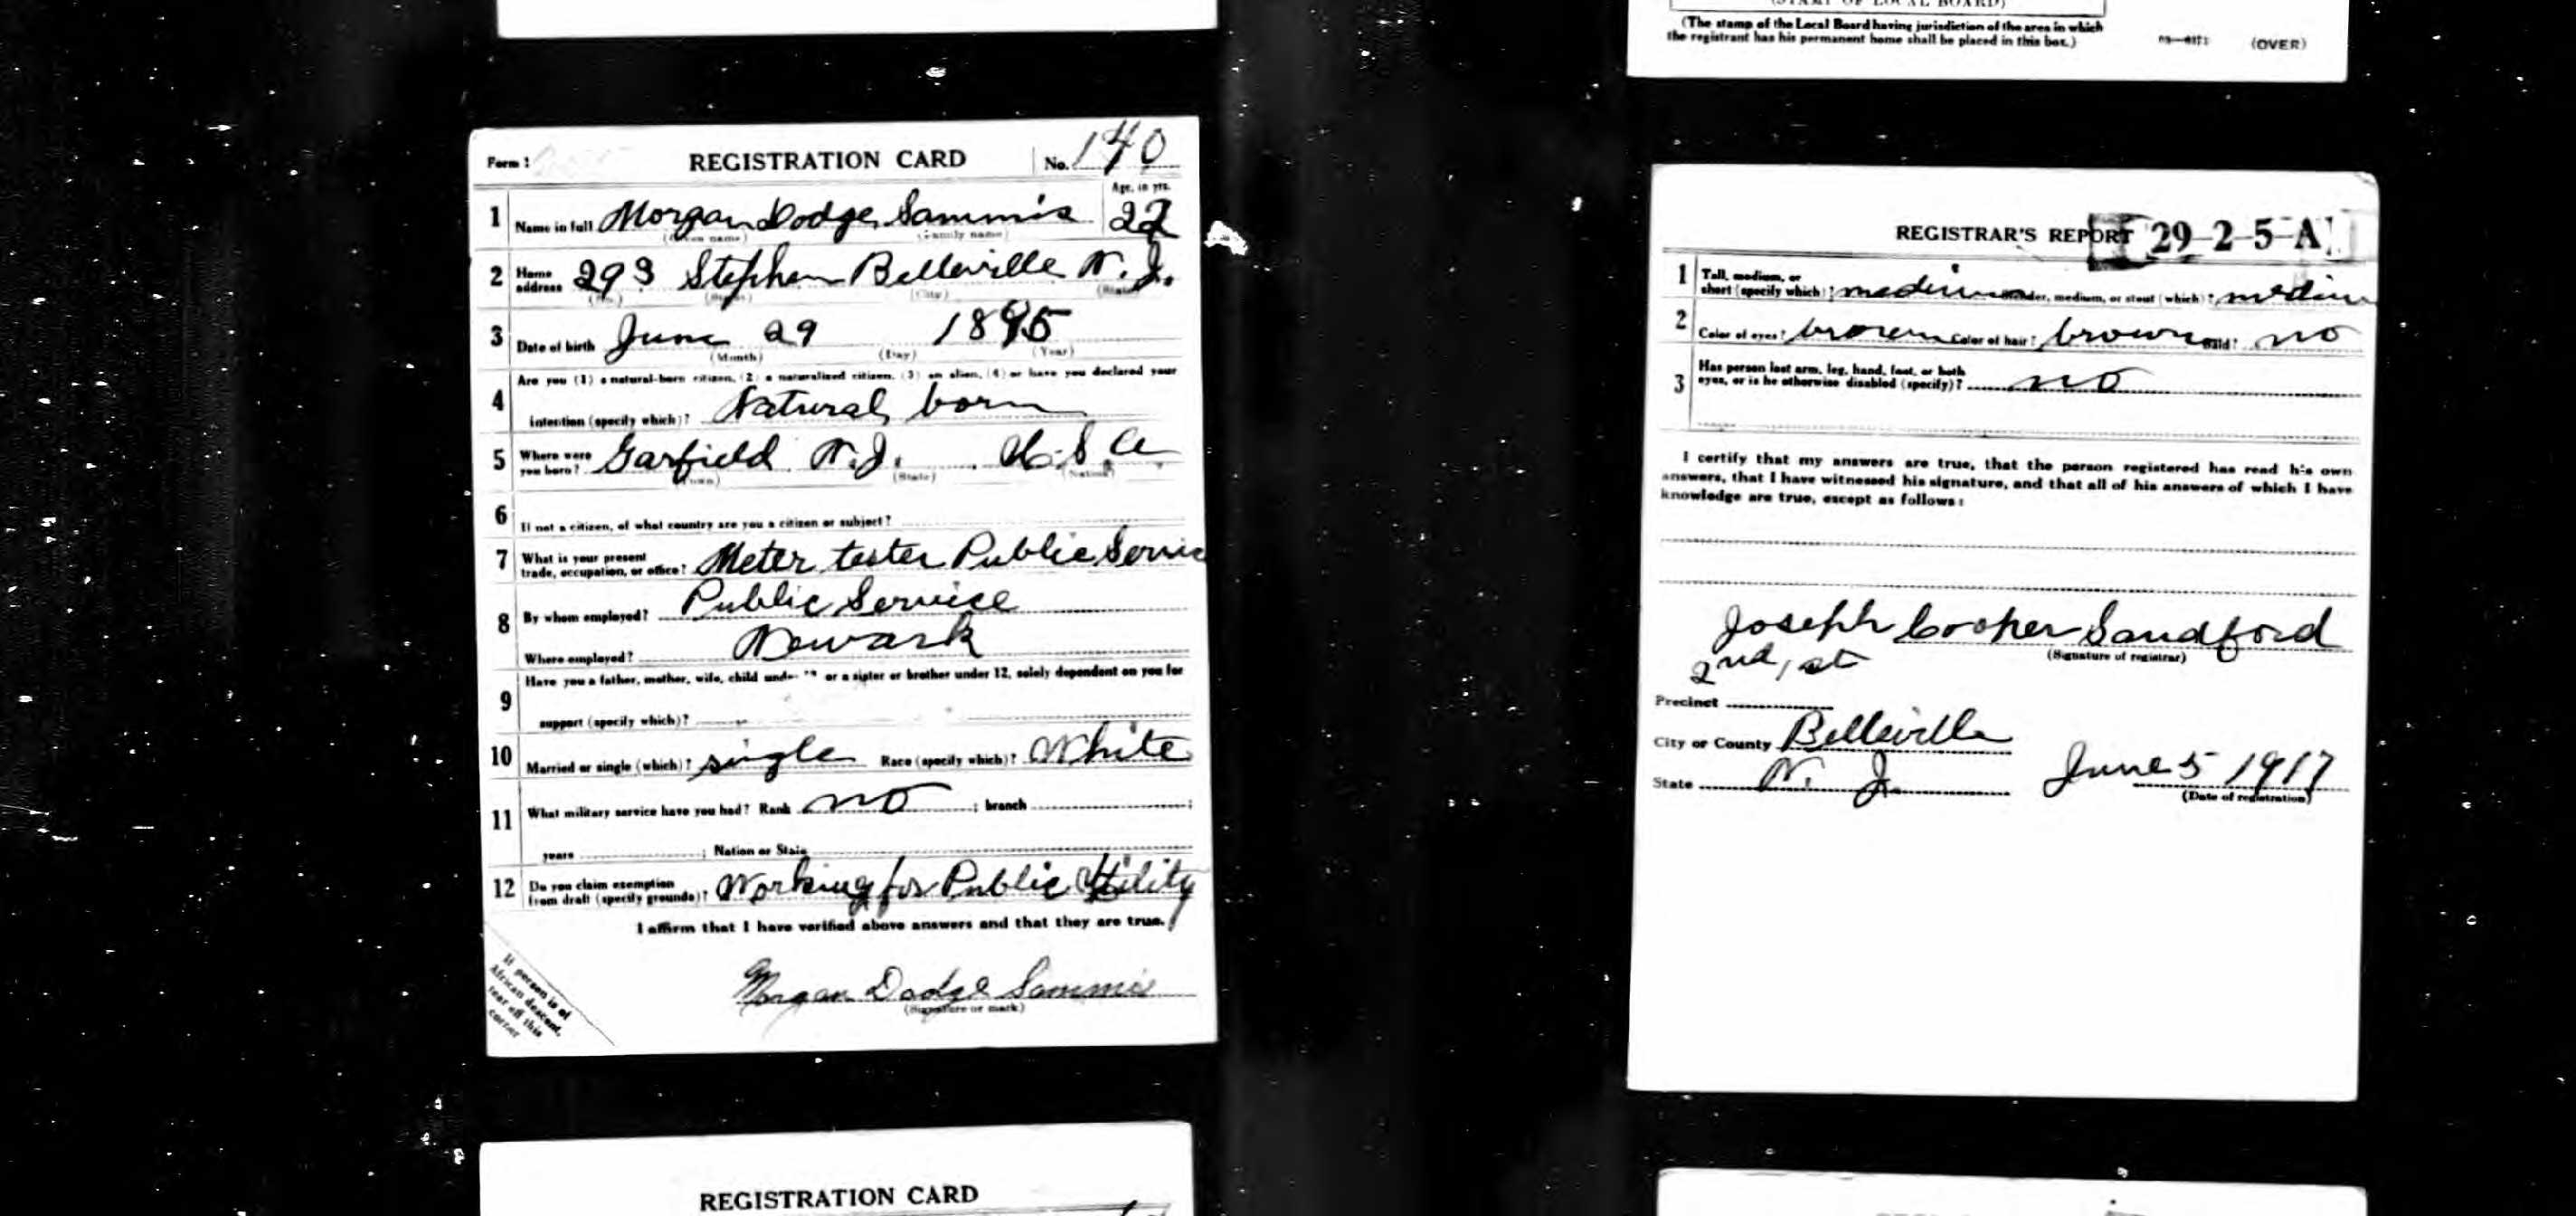 (STAMP OF LOCAL BOARD)
(The stamp of the Local Board having jurisdiction of the area in which
the registrant has his permanent home shall be placed in this box.)
(OVER)
Form 1 REGISTRATION CARD No. 140
1 Name in full Morgan Dodge Sammis Age, in yrs. 22
(Given name) (Family name)
2 Home address 293 Stephen Belleville N. J.
(No.) (Street) (City) (State)
3 Date of birth June 29 1895
(Month) (Day) (Year)
4 Are you (1) a natural-born citizen, (2) a naturalized citizen, (3) an alien, (4) or have you declared your
intention (specify which)? Natural born
5 Where were you born? Garfield N.J. U.S.A
(Town) (State) (Nation)
6 If not a citizen, of what country are you a citizen or subject?
7 What is your present trade, occupation, or office? Meter tester Public Servic
8 By whom employed? Public Service
Where employed? Newark
9 Have you a father, mother, wife, child under or a sister or brother under 12, solely dependent on you for
support (specify which)?
10 Married or single (which)? single Race (specify which)? White
11 What military service have you had? Rank no ; branch ;
years ; Nation or State
12 Do you claim exemption from draft (specify grounds)? Working for Public Utility
I affirm that I have verified above answers and that they are true.
Morgan Dodge Sammis
(Signature or mark)
If person is of
African descent,
tear off this
corner
REGISTRATION CARD
REGISTRAR'S REPORT 29-2-5-A
1 Tall, medium, or short (specify which)? medium Slender, medium, or stout (which)? medium
2 Color of eyes? brown Color of hair? brown Bald? no
3 Has person lost arm, leg, hand, foot, or both
eyes, or is he otherwise disabled (specify)? no
I certify that my answers are true, that the person registered has read his own
answers, that I have witnessed his signature, and that all of his answers of which I have
knowledge are true, except as follows:
Joseph Cooper Sandford
(Signature of registrar)
2nd, st
Precinct
City or County Belleville
State N. J. June 5 1917
(Date of registration)